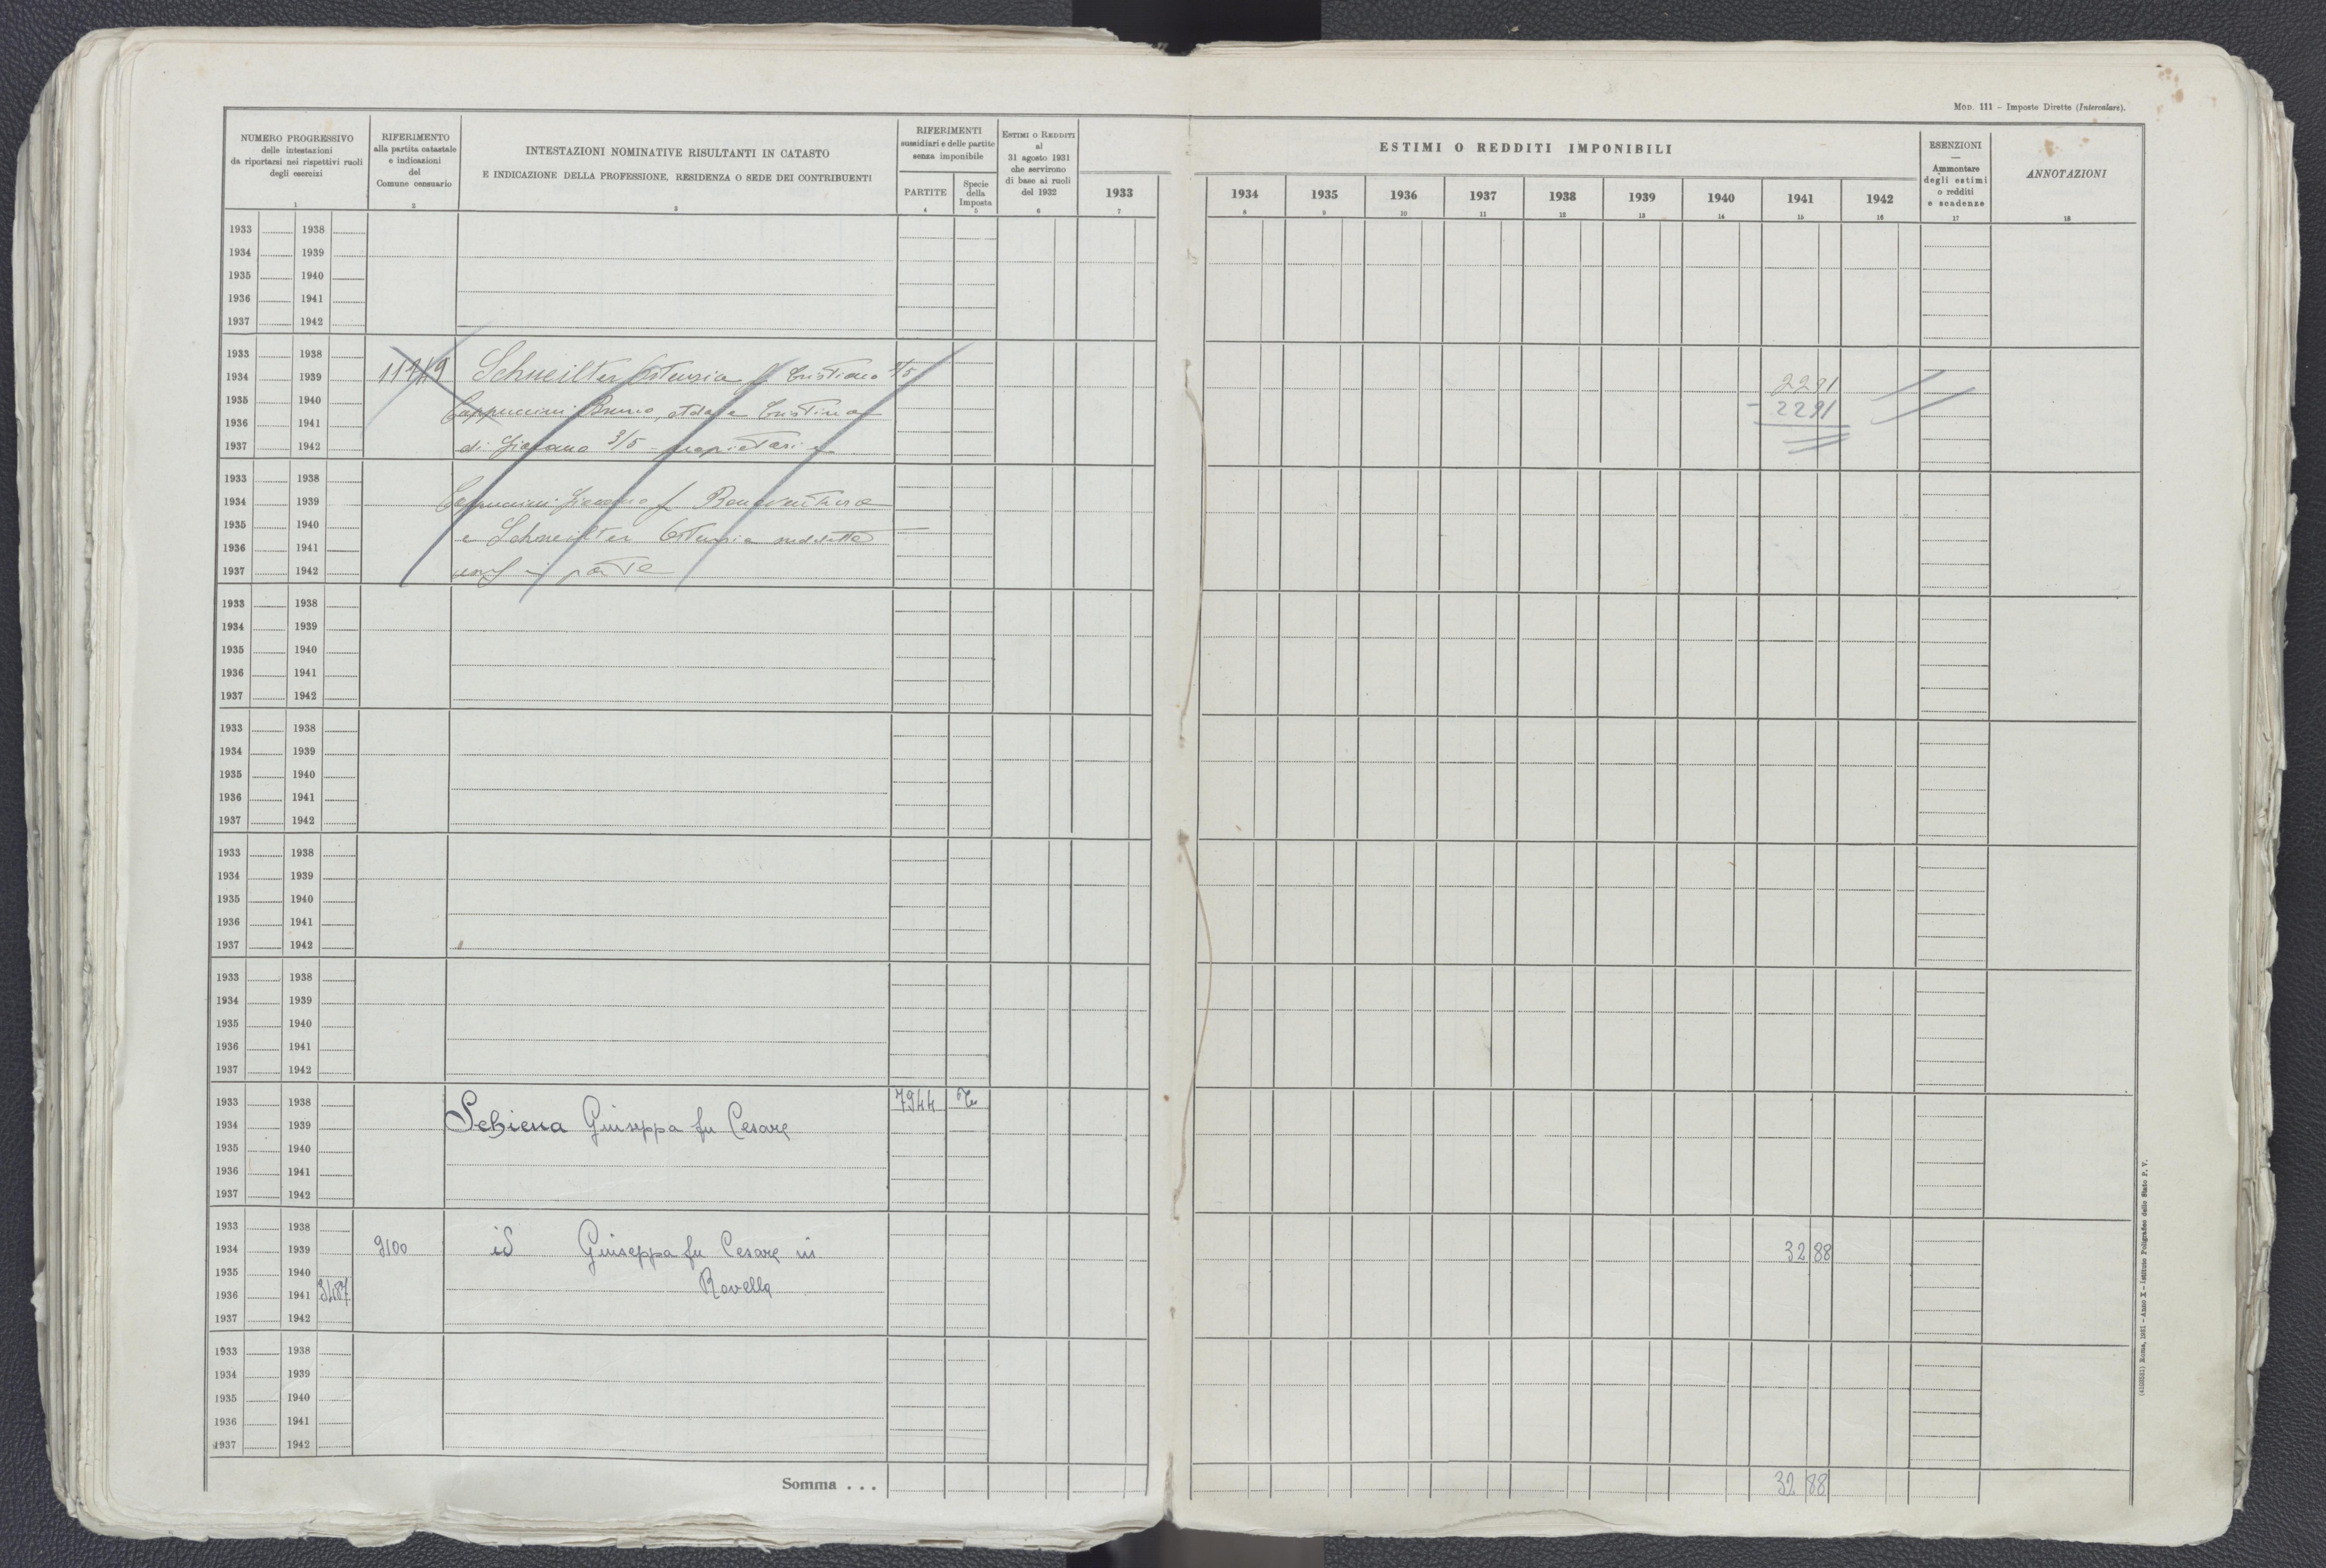 MOD. 111 – Imposte Dirette (Intercalare).
NUMERO PROGRESSIVO
delle intestazioni
da riportarsi nei rispettivi ruoli
degli esercizi
1
RIFERIMENTO
alla partita catastale
e indicazioni
del
Comune censuario
2
INTESTAZIONI NOMINATIVE RISULTANTI IN CATASTO
E INDICAZIONE DELLA PROFESSIONE, RESIDENZA O SEDE DEI CONTRIBUENTI
3
RIFERIMENTI
sussidiari e delle partite
senza imponibile
PARTITE
4
Specie
della
Imposta
5
ESTIMI O REDDITI
al
31 agosto 1931
che servirono
di base ai ruoli
del 1932
6
1933
7
ESTIMI O REDDITI IMPONIBILI
1934 1935 1936 1937 1938 1939 1940 1941 1942
8 9 10 11 12 13 14 15 16
ESENZIONI
—
Ammontare
degli estimi
o redditi
e scadenze
17
ANNOTAZIONI
18
1933 1938
1934 1939
1935 1940
1936 1941
1937 1942
1933 1938
1934 1939 Schneilter Ostensia f Cristiano 2291
1935 1940 Cappuccini Bruno, e Cristina - 2291
1936 1941
1937 1942 di Giacomo 3/5 proprietari e
1933 1938
1934 1939 Cappuccini Giacomo f Bonaventura
1935 1940
1936 1941 e Schneilter Ostensia suddetta
1937 1942 usuf in parte
1933 1938
1934 1939
1935 1940
1936 1941
1937 1942
1933 1938
1934 1939
1935 1940
1936 1941
1937 1942
1933 1938
1934 1939
1935 1940
1936 1941
1937 1942
1933 1938
1934 1939
1935 1940
1936 1941
1937 1942
1933 1938 7944
1934 1939 Schiena Giuseppa fu Cesare
1935 1940
1936 1941
1937 1942
1933 1938
1934 1939 9100 id Giuseppa fu Cesare in 32 88
1935 1940
1936 1941 3487 Ravella
1937 1942
1933 1938
1934 1939
1935 1940
1936 1941
1937 1942
Somma . . . 32 88
(4103531) Roma, 1931 – Anno X – Istituto Poligrafico dello Stato P. V.